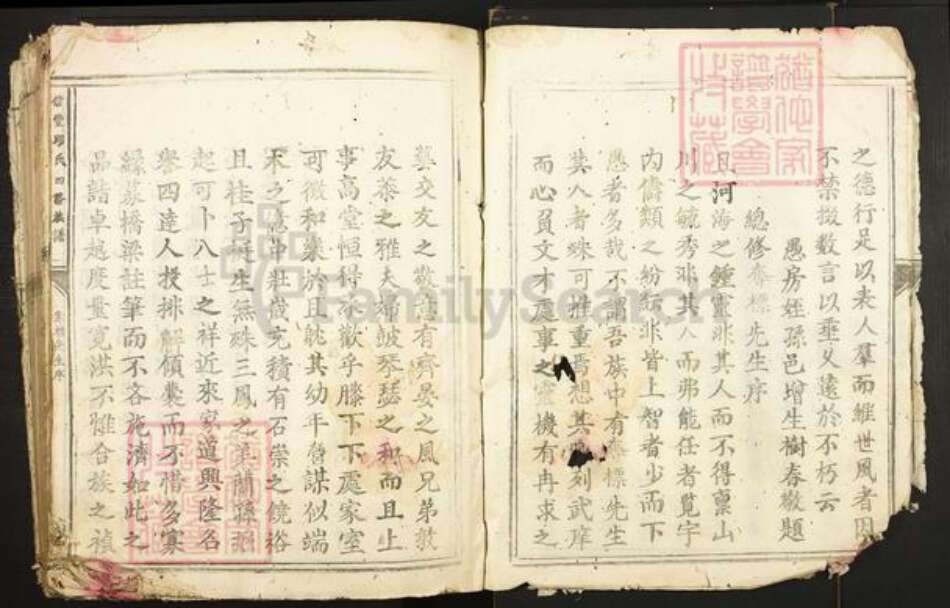 之德行足以表人羣而維世風者因
不禁掇数言以垂久遠於不朽云
愚房姪孫邑增生樹春敬題
總修奪標先生序
且河海之鍾靈非其人而不得稟山
川之毓秀非其人而弗能任者覓宇
內儔類之紛紜非皆上智者少而下
愚者多哉不謂吾族中有奪標先生
其人者殊可雅重焉想其列武庠
而心員文才處事之機有冉求之
藝交友之敬有齊晏之風兄弟敦
友恭之雅夫婦皷琴瑟之和而且上
事高堂恒得歡乎膝下下處家室
可徵和樂於且躭其幼年謀似端
木之憶中壯歲充積有石崇之饒裕
且桂子挺生無殊三鳳之蘭孫
起可卜八士之祥近來家道興隆名
譽四達人投排解傾囊而不惜多寡
緣募橋梁註筆而不吝施濟如此之
品詣卓越度量寬洪不惟合族之禎
氏四修族譜
奪標先生序
FamilySearch